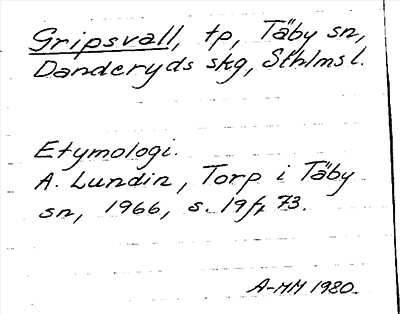 Gripsvall, tp, Täby sn,
Danderyds skg, Sthlms l.
Etymologi.
A. Lundin, Torp i Täby
sn, 1966, s. 19f, 73.
A-MM 1980.